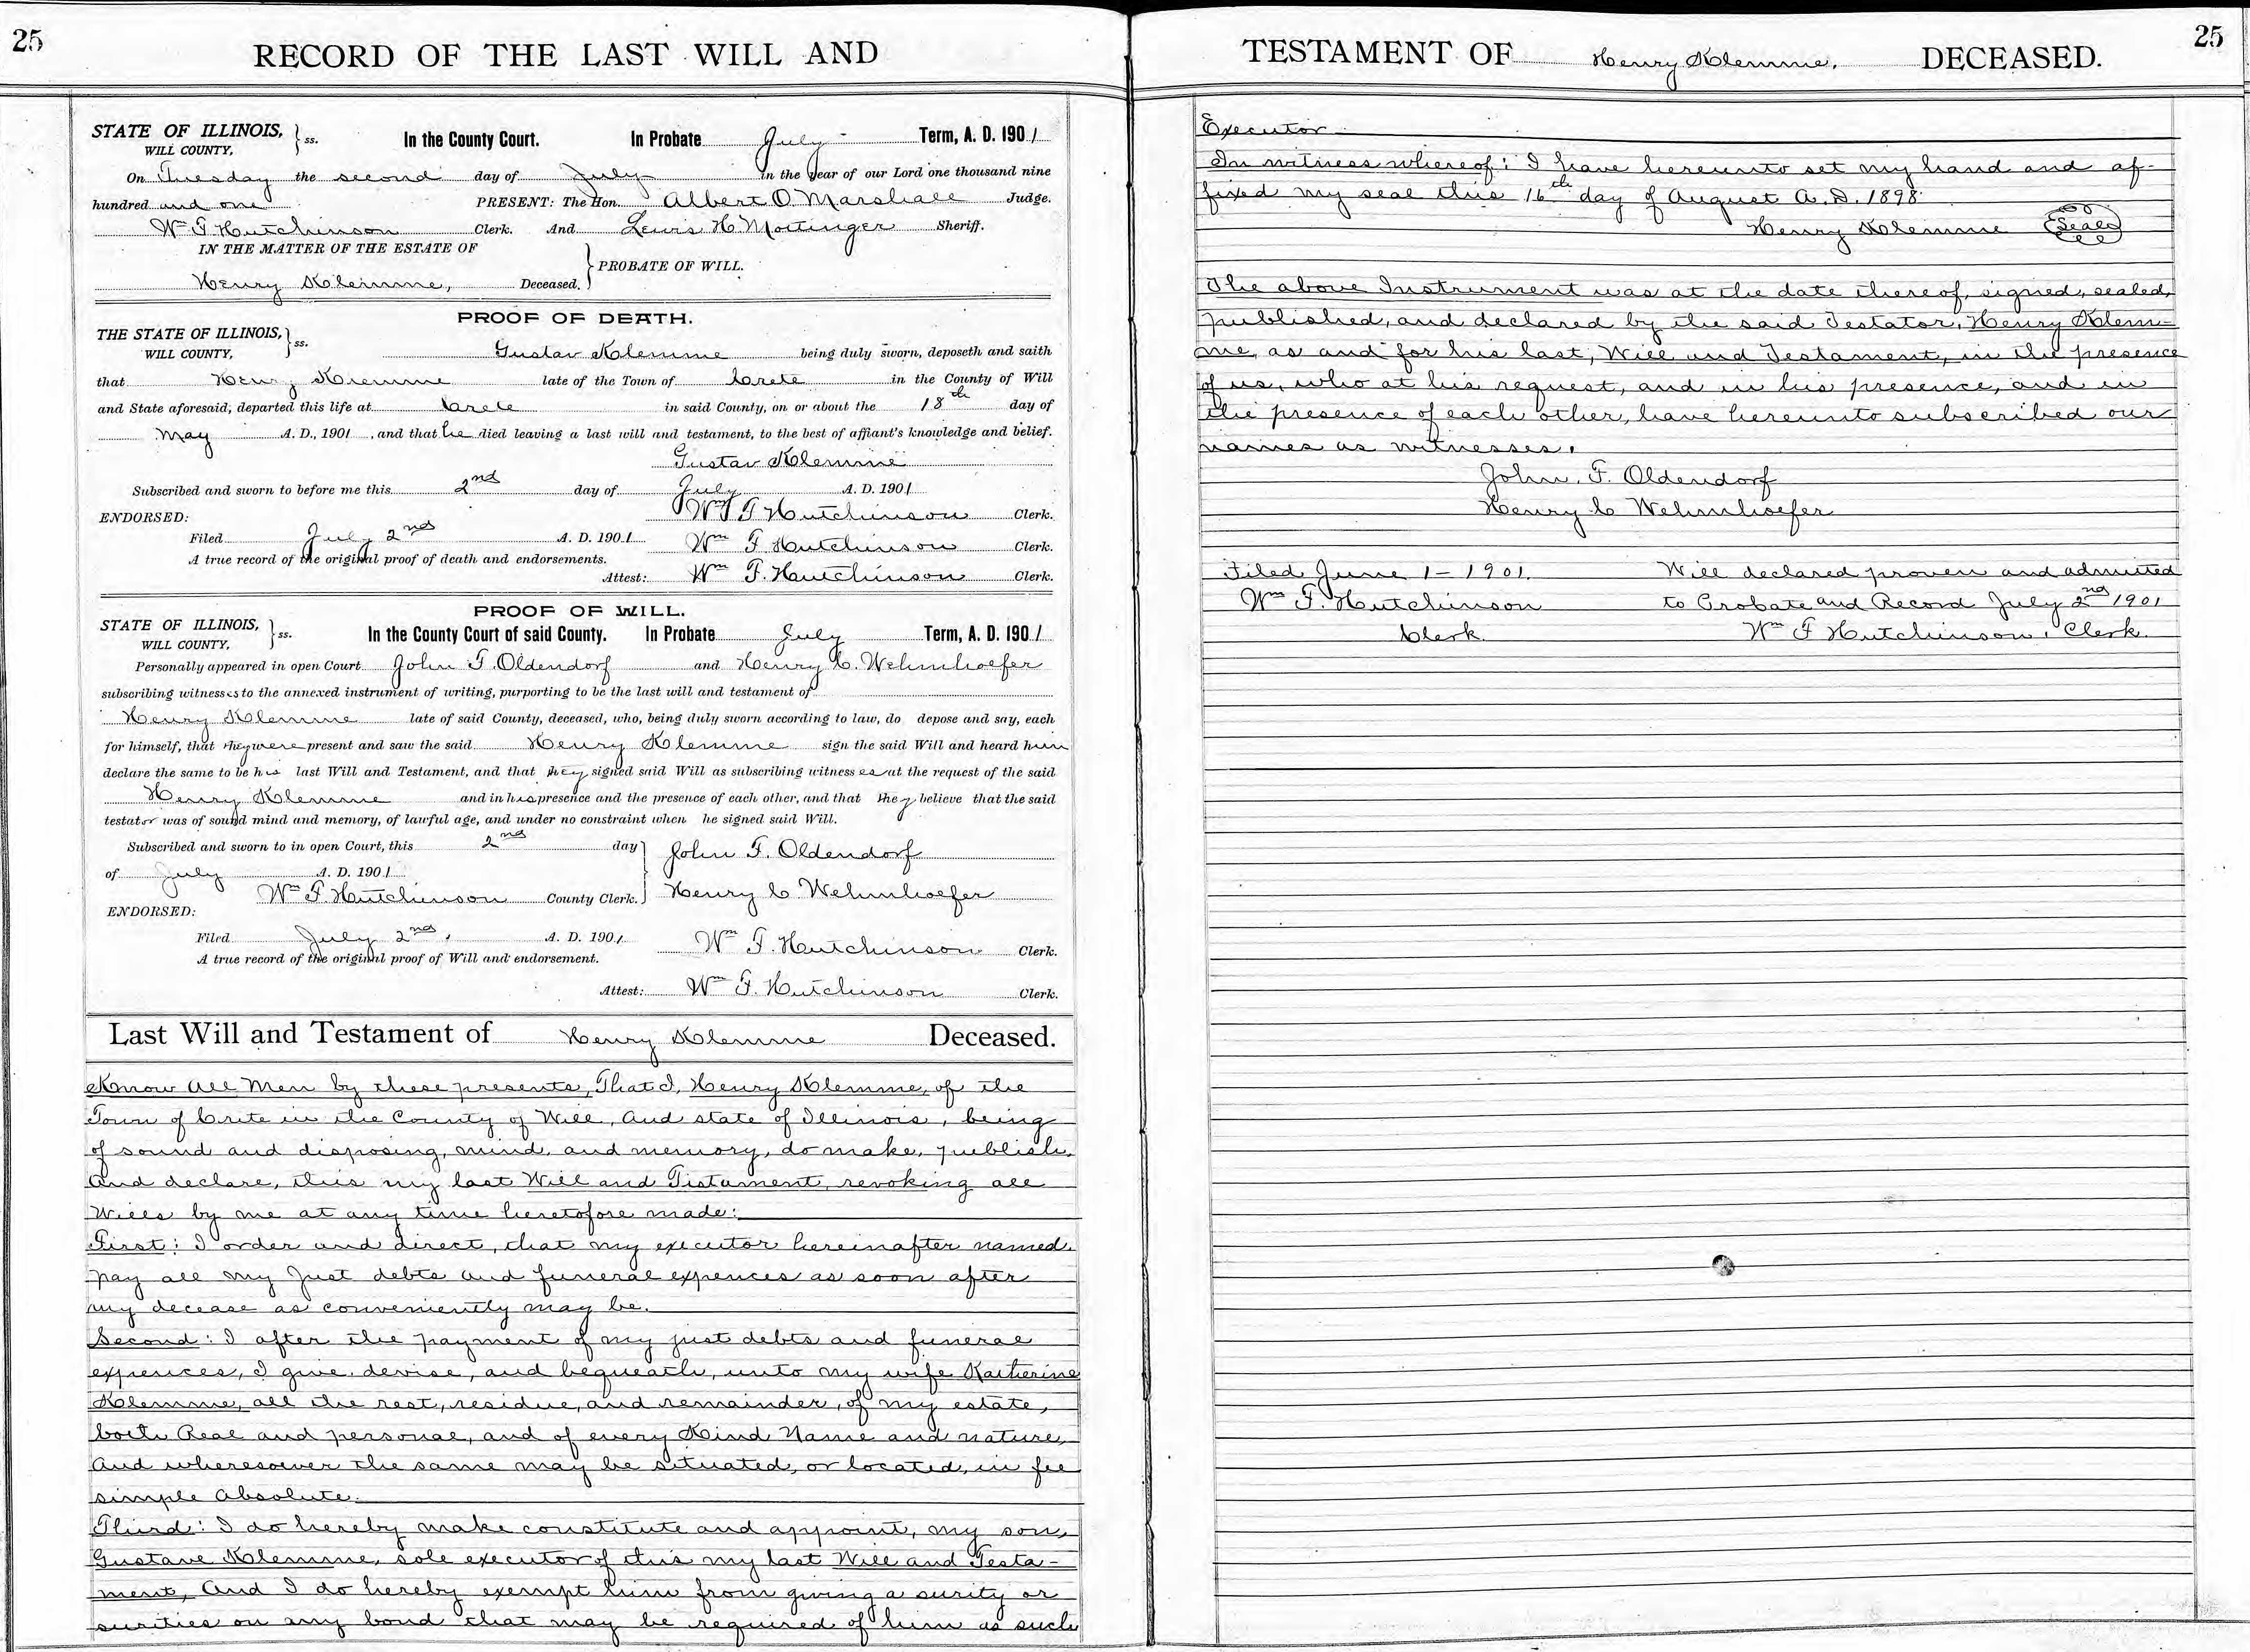 25
RECORD OF THE LAST WILL AND
STATE OF ILLINOIS, } ss.
WILL COUNTY,
In the County Court. In Probate July Term, A. D. 1901
On Tuesday the second day of July in the year of our Lord one thousand nine
hundred and one PRESENT: The Hon. Albert O. Marshall Judge.
Wm F. Hutchinson Clerk. And Lewis H. Mottinger Sheriff.
IN THE MATTER OF THE ESTATE OF
} PROBATE OF WILL.
Henry Klemme, Deceased.
PROOF OF DEATH.
THE STATE OF ILLINOIS, } ss.
WILL COUNTY,
Gustav Klemme being duly sworn, deposeth and saith
that Henry Klemme late of the Town of Crete in the County of Will
and State aforesaid, departed this life at Crete in said County, on or about the 18th day of
May A. D., 1901, and that he died leaving a last will and testament, to the best of affiant's knowledge and belief.
Gustav Klemme
Subscribed and sworn to before me this 2nd day of July A. D. 1901
ENDORSED: Wm F Hutchinson Clerk.
Filed July 2nd A. D. 1901 Wm F. Hutchinson Clerk.
A true record of the original proof of death and endorsements.
Attest: Wm F. Hutchinson Clerk.
PROOF OF WILL.
STATE OF ILLINOIS, } ss.
WILL COUNTY,
In the County Court of said County. In Probate July Term, A. D. 1901
Personally appeared in open Court John F. Oldendorf and Henry C. Wehmhoefer
subscribing witnesses to the annexed instrument of writing, purporting to be the last will and testament of
Henry Klemme late of said County, deceased, who, being duly sworn according to law, do depose and say, each
for himself, that they were present and saw the said Henry Klemme sign the said Will and heard him
declare the same to be his last Will and Testament, and that they signed said Will as subscribing witness es at the request of the said
Henry Klemme and in his presence and the presence of each other, and that they believe that the said
testator was of sound mind and memory, of lawful age, and under no constraint when he signed said Will.
Subscribed and sworn to in open Court, this 2nd day } John F. Oldendorf
of July A. D. 1901
Wm F. Hutchinson County Clerk. Henry C Wehmhoefer
ENDORSED:
Filed July 2nd, A. D. 1901 Wm F. Hutchinson Clerk.
A true record of the original proof of Will and endorsement.
Attest: Wm F. Hutchinson Clerk.
Last Will and Testament of Henry Klemme Deceased.
Know All Men by these presents, That I, Henry Klemme, of the
Town of Crete in the County of Will, And state of Illinois, being
of sound and disposing, mind, and memory, do make, publish,
And declare, this my last Will and Tistament, revoking all
Wills by me at any time heretofore made:
First: I order and direct, that my executor hereinafter named.
pay all my Just debts and funeral expences as soon after
my decease as conveniently may be.
Second: I after the payment of my just debts and funeral
expences, I give, devise, and bequeath, unto my wife Katherine
Klemme, all the rest, residue, and remainder, of my estate,
both Real and personal, and of every Kind Name and nature,
And wheresoever the same may be situated, or located, in fee
simple Absolute.
Third: I do hereby make constitute and appoint, my son,
Gustave Klemme, sole executor of this my last Will and Testa-
ment, And I do hereby exempt him from giving a surity or
surities on any bond that may be required of him as such
25
TESTAMENT OF Henry Klemme, DECEASED.
Executor
In witness whereof: I have hereunto set my hand and af-
fixed my seal this 16th day of August A. D. 1898.
Henry Klemme Seal
The above Instrument was at the date thereof, signed, sealed,
published, and declared by the said Testator, Henry Klem-
me, as and for his last, Will and Testament, in the presence
of us, who at his request, and in his presence, and in
the presence of each other, have hereunto subscribed our
names as witnesses.
John. F. Oldendorf
Henry C Wehmhoefer
Filed June 1 - 1901. Will declared proven and admitted
Wm F. Hutchinson to Probate and Record July 2nd 1901
Clerk. Wm F Hutchinson, Clerk.